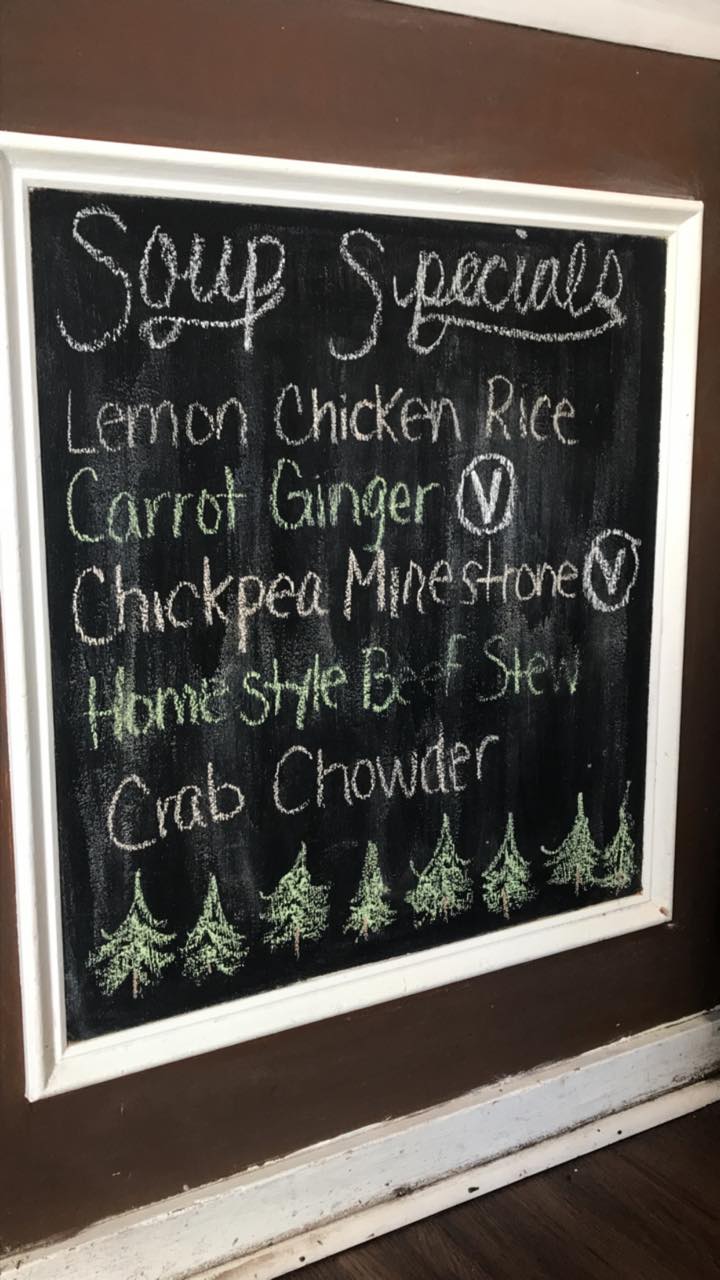 Soup Specials
Lemon Chicken Rice
Carrot Ginger V
Chickpea Minestrone V
Home style Beef Stew
Crab Chowder